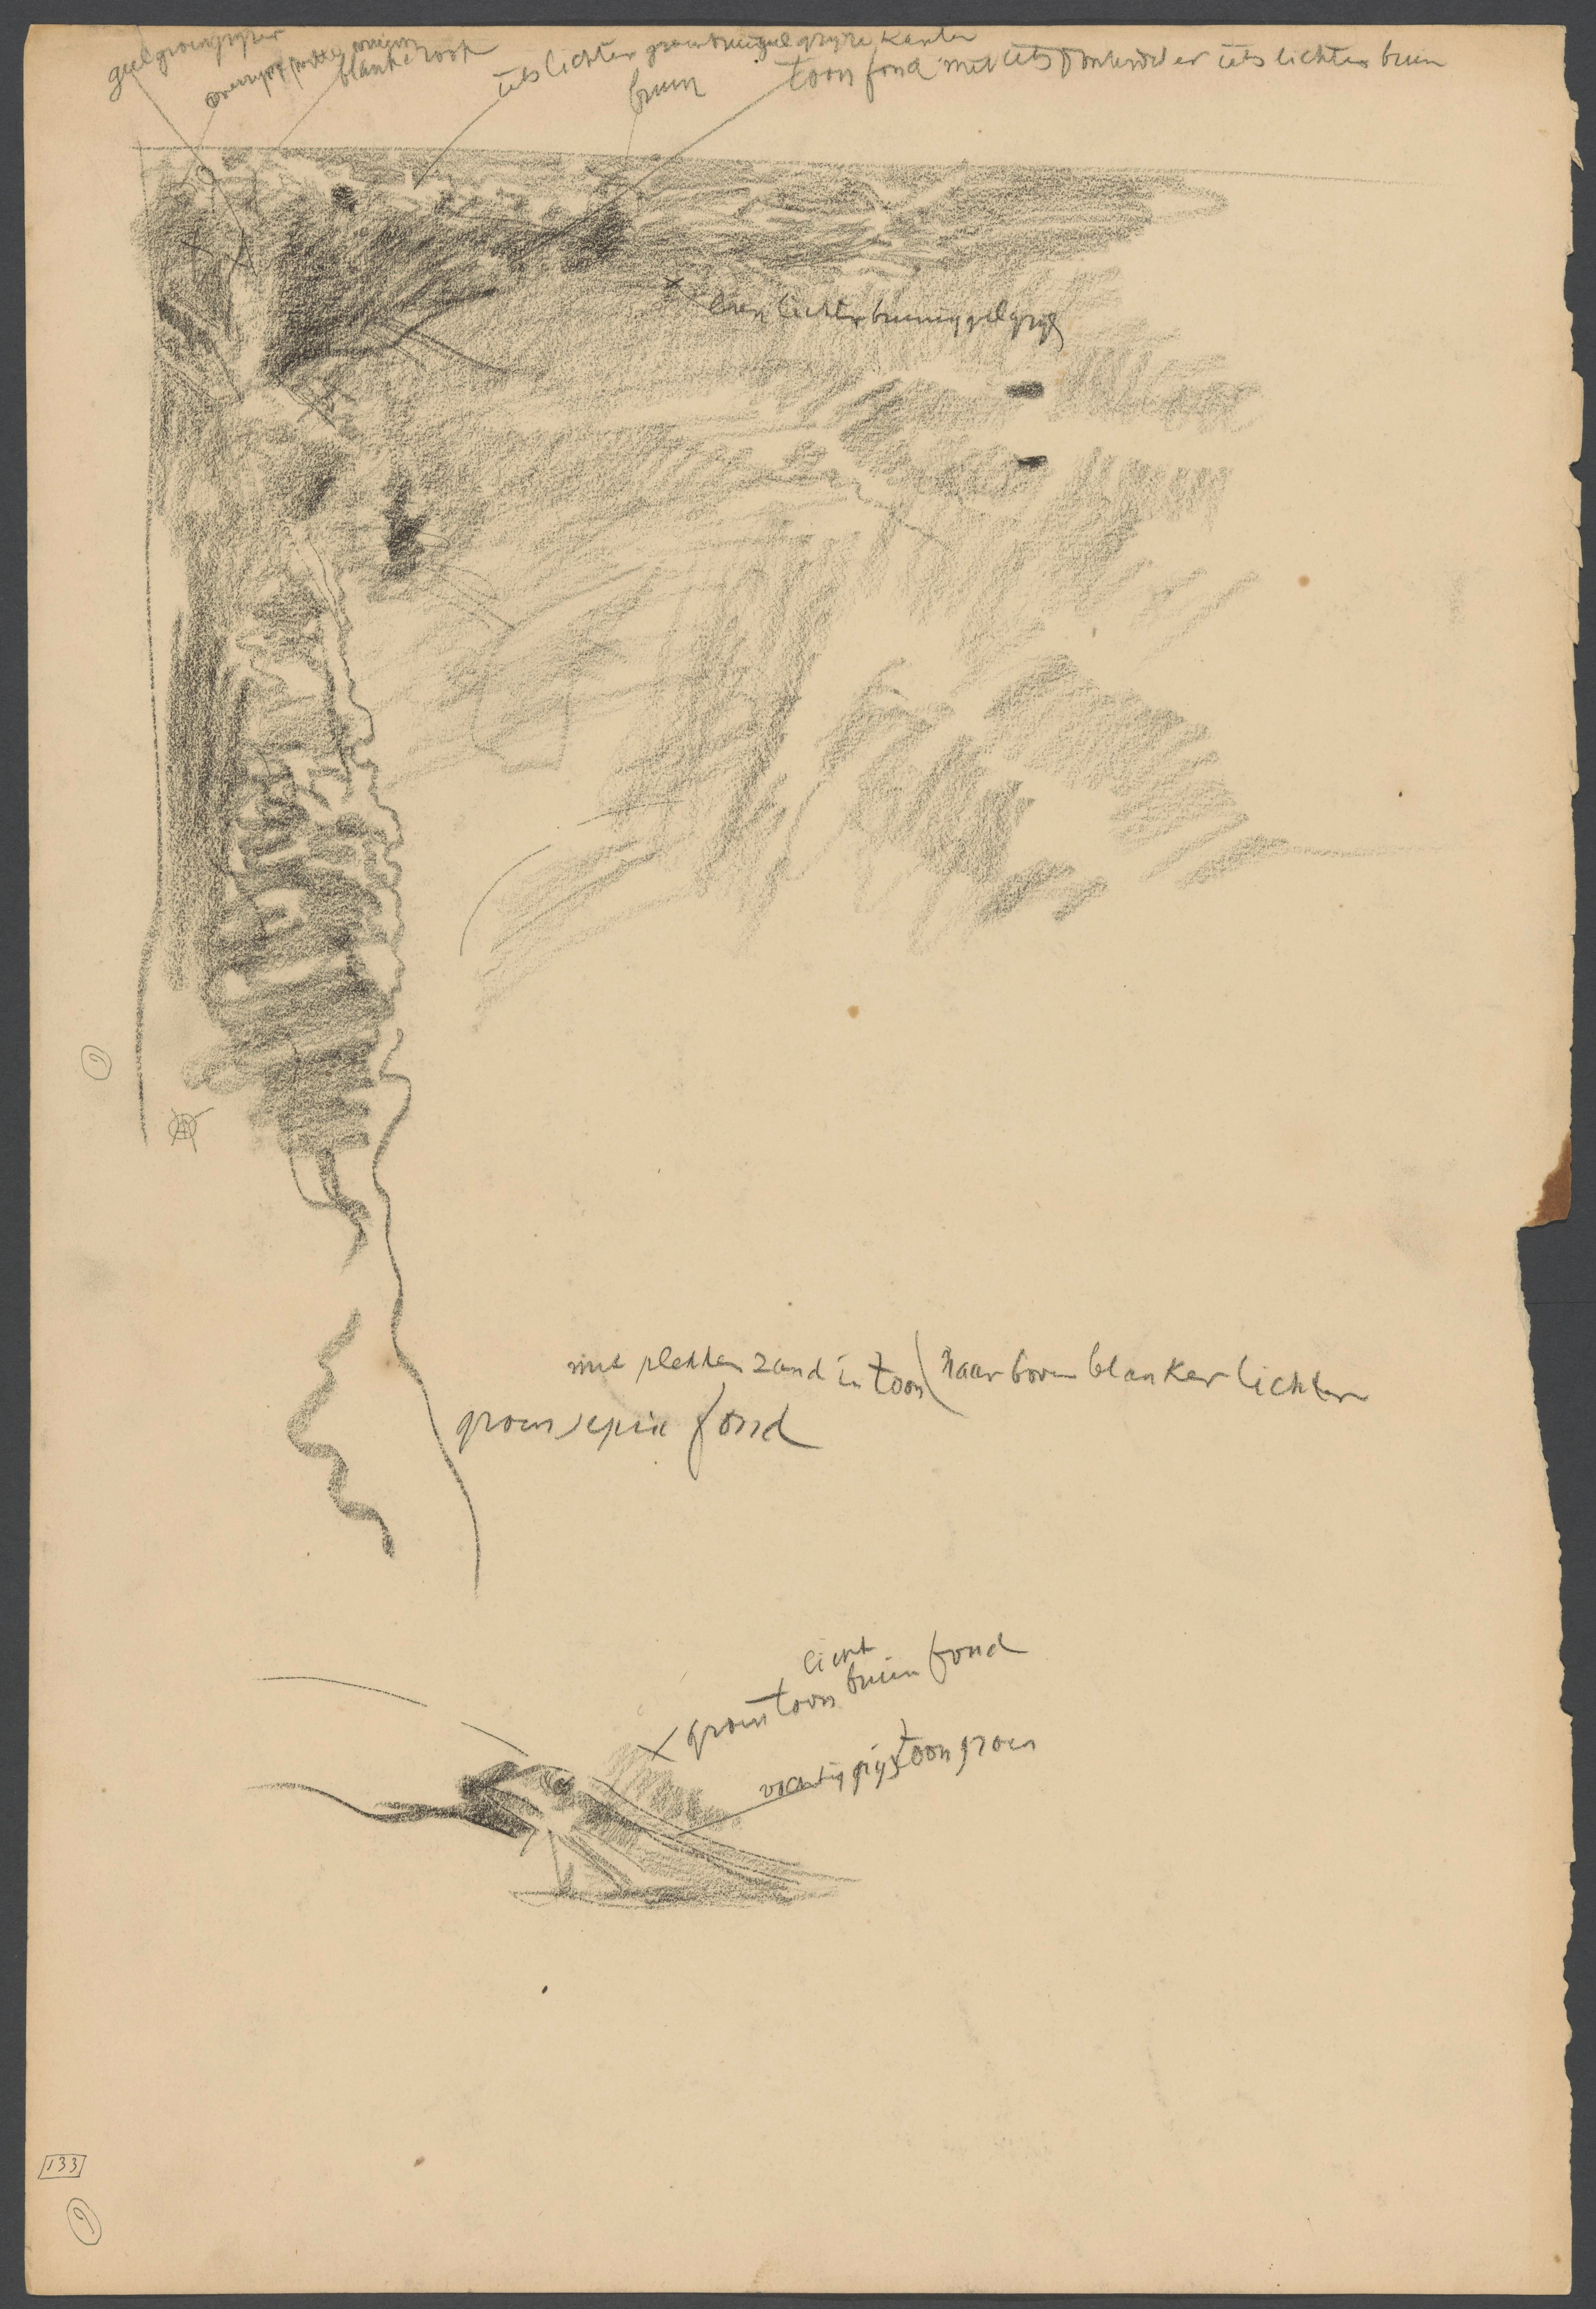 geelgroengrijzer
blanke rook
iets lichter groenbruingeelgrijze kanten
bruin
toon fond met iets donkerder er iets lichter bruin
even lichter bruiniggeelgrijs
met plekken zand in toon ( naar boven blanker lichter
groen sepia fond
licht
x groen toon bruin fond
vochtig grijs toon groen
133
9